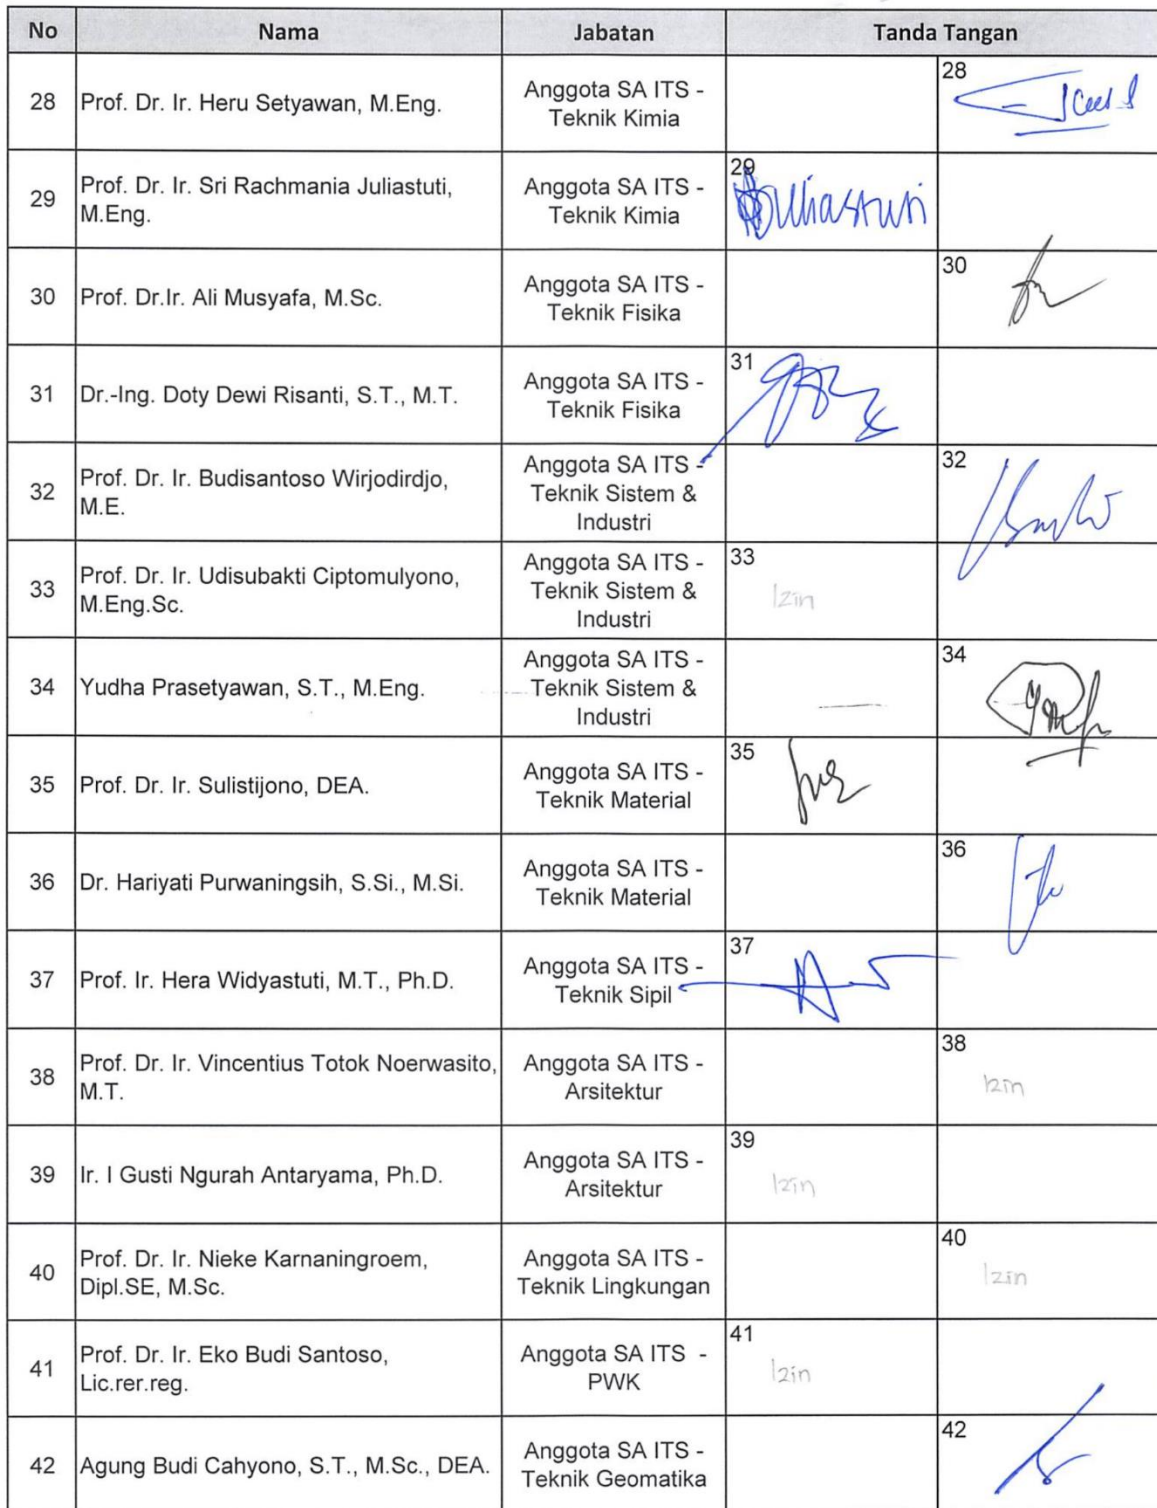 No Nama Jabatan Tanda Tangan
28 Prof. Dr. Ir. Heru Setyawan, M.Eng. Anggota SA ITS - 28
Teknik Kimia
29 Prof. Dr. Ir. Sri Rachmania Juliastuti, Anggota SA ITS - 29
M.Eng. Teknik Kimia Juliastuti
30 Prof. Dr.Ir. Ali Musyafa, M.Sc. Anggota SA ITS - 30
Teknik Fisika
31 Dr.-Ing. Doty Dewi Risanti, S.T., M.T. Anggota SA ITS - 31
Teknik Fisika
32 Prof. Dr. Ir. Budisantoso Wirjodirdjo, Anggota SA ITS - 32
M.E. Teknik Sistem &
Industri
33 Prof. Dr. Ir. Udisubakti Ciptomulyono, Anggota SA ITS - 33
M.Eng.Sc. Teknik Sistem & Izin
Industri
34 Yudha Prasetyawan, S.T., M.Eng. Anggota SA ITS - 34
Teknik Sistem &
Industri
35 Prof. Dr. Ir. Sulistijono, DEA. Anggota SA ITS - 35
Teknik Material
36 Dr. Hariyati Purwaningsih, S.Si., M.Si. Anggota SA ITS - 36
Teknik Material
37 Prof. Ir. Hera Widyastuti, M.T., Ph.D. Anggota SA ITS - 37
Teknik Sipil
38 Prof. Dr. Ir. Vincentius Totok Noerwasito, Anggota SA ITS - 38
M.T. Arsitektur Izin
39 Ir. I Gusti Ngurah Antaryama, Ph.D. Anggota SA ITS - 39
Arsitektur Izin
40 Prof. Dr. Ir. Nieke Karnaningroem, Anggota SA ITS - 40
Dipl.SE, M.Sc. Teknik Lingkungan Izin
41 Prof. Dr. Ir. Eko Budi Santoso, Anggota SA ITS - 41
Lic.rer.reg. PWK Izin
42 Agung Budi Cahyono, S.T., M.Sc., DEA. Anggota SA ITS - 42
Teknik Geomatika